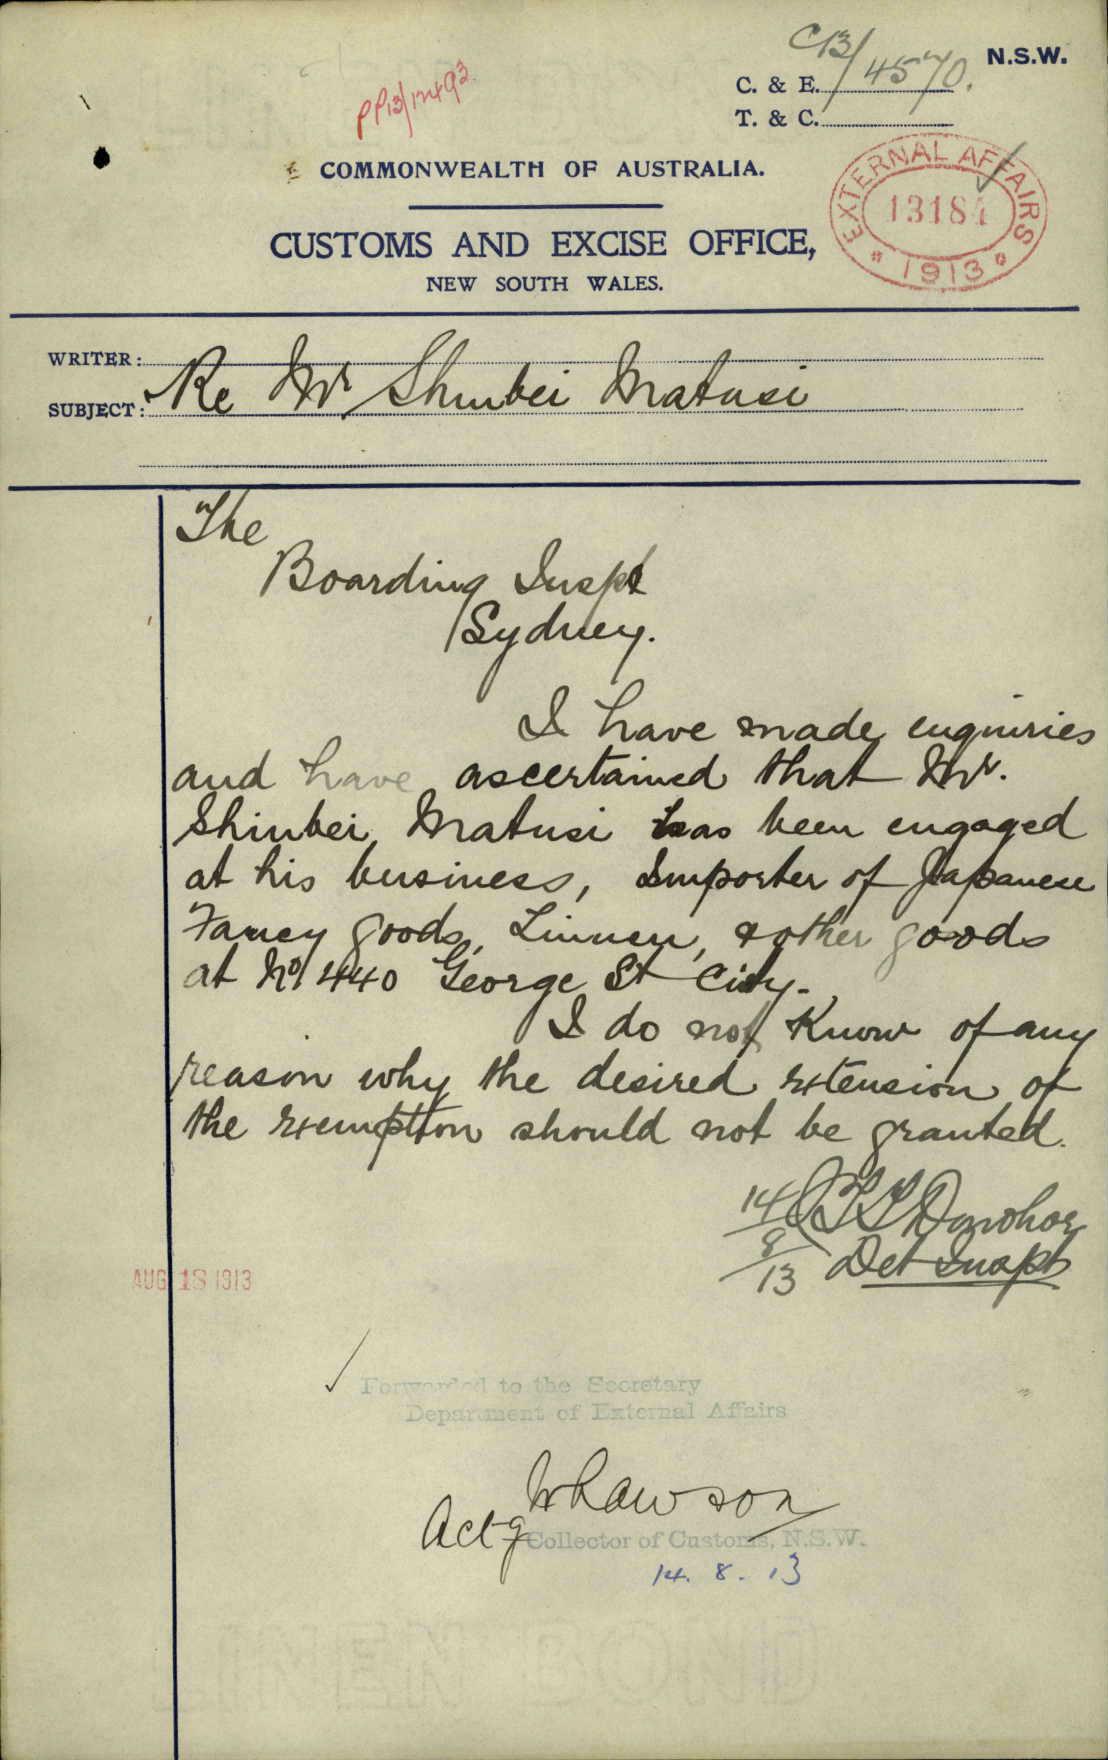 C13/4570.
N.S.W.
C. & E.
T. & C.
PP13/12493
COMMONWEALTH OF AUSTRALIA.
EXTERNAL AFFAIRS
13184
1913
CUSTOMS AND EXCISE OFFICE,
NEW SOUTH WALES.
WRITER:
SUBJECT: Re Mr Shinbei Matusi
The
Boarding Inspt
Sydney.
I have made enquiries
and have ascertained that Mr.
Shinbei Matusi has been engaged
at his business, Importer of Japanese
Fancy goods, Linnen, & other goods
at No 440 George St City.
I do not know of any
reason why the desired extension of
the exemption should not be granted.
14/8/13 Donohoe
Det Inspt
AUG 18 1913
Forwarded to the Secretary
Department of External Affairs
W Lawson
Actg Collector of Customs, N.S.W.
14. 8. 13